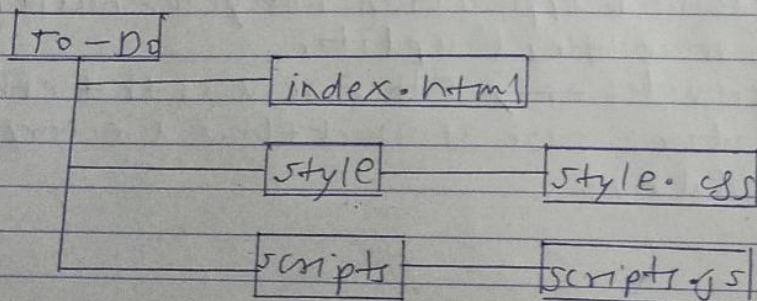 To-Do
index.html
style style.css
scripts scripts.js